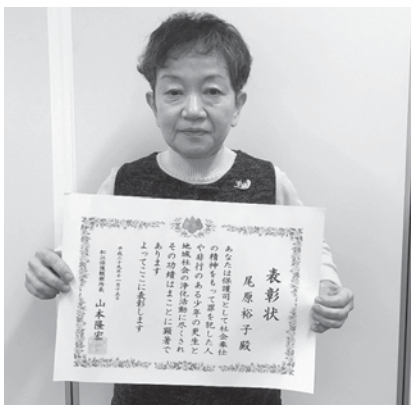 表彰状
尾原裕子殿
あなたは保護司として社会奉仕
の精神をもって罪を犯した人
や非行のある少年の更生と
地域社会の浄化活動に尽くされ
その功績はまことに顕著で
あります
よってここに表彰します
山本隆宏